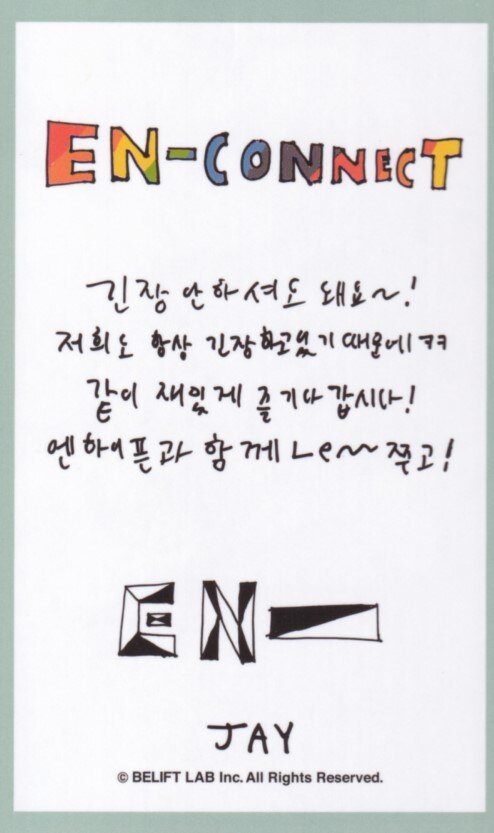 EN-CONNECT
긴장 안하셔도 돼요~!
저희도 항상 긴장하고있기 때문에 ㅋㅋ
같이 재밌게 즐기다 갑시다!
엔하이픈과 함께 Le~~쭈고!
EN-
JAY
© BELIFT LAB Inc. All Rights Reserved.